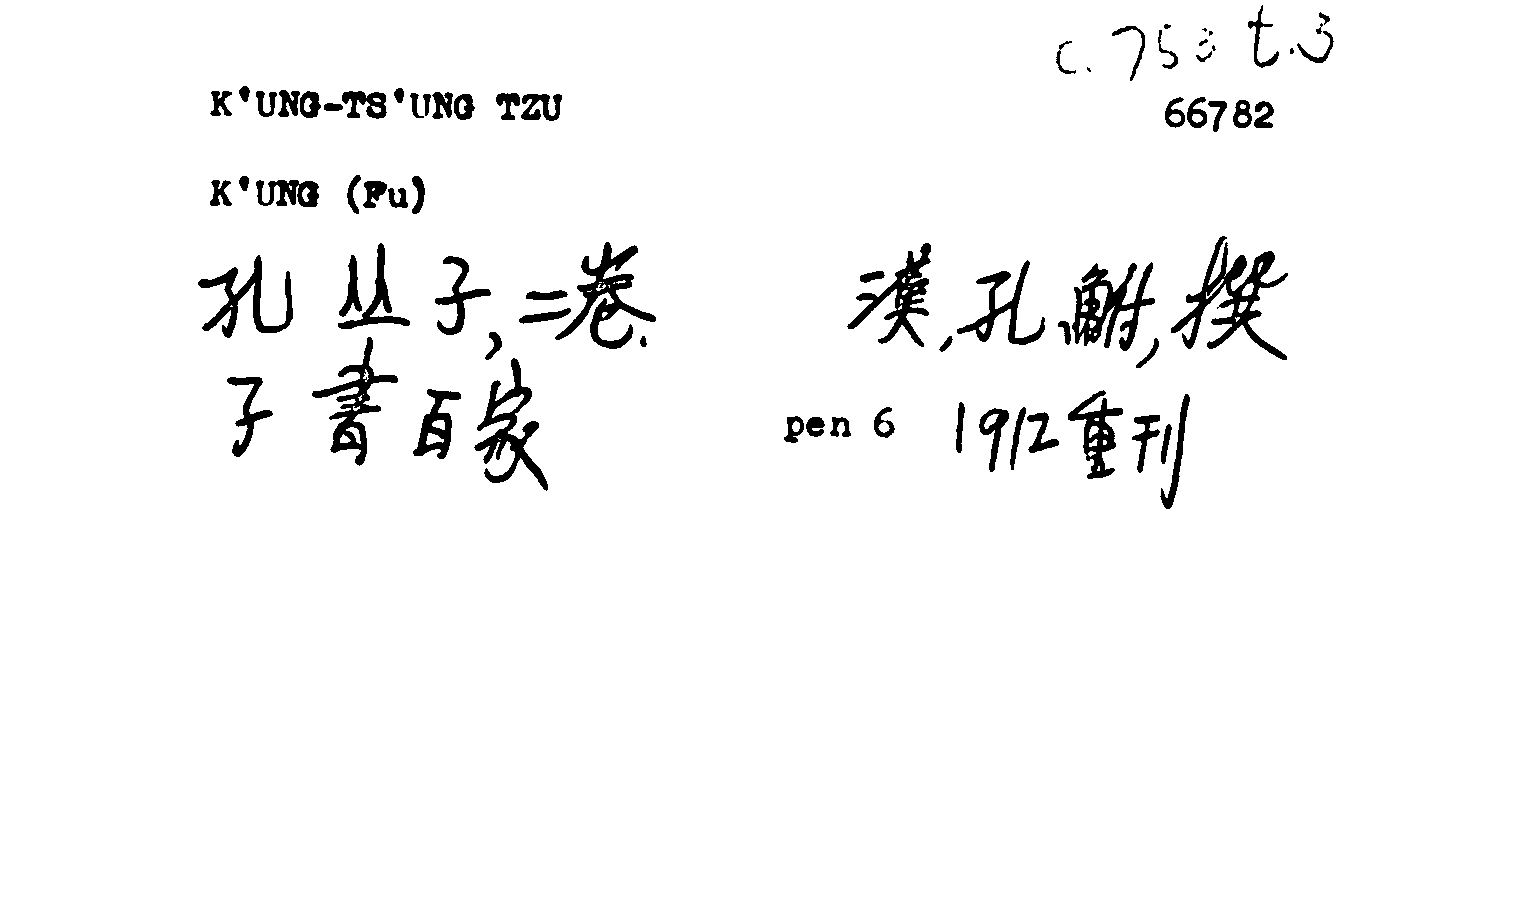 c. 753 t.3
K'UNG-TS'UNG TZU 66782
K'UNG (Fu)
孔丛子,二卷. 漢,孔鮒,撰
子書百家 pen 6 1912重刊